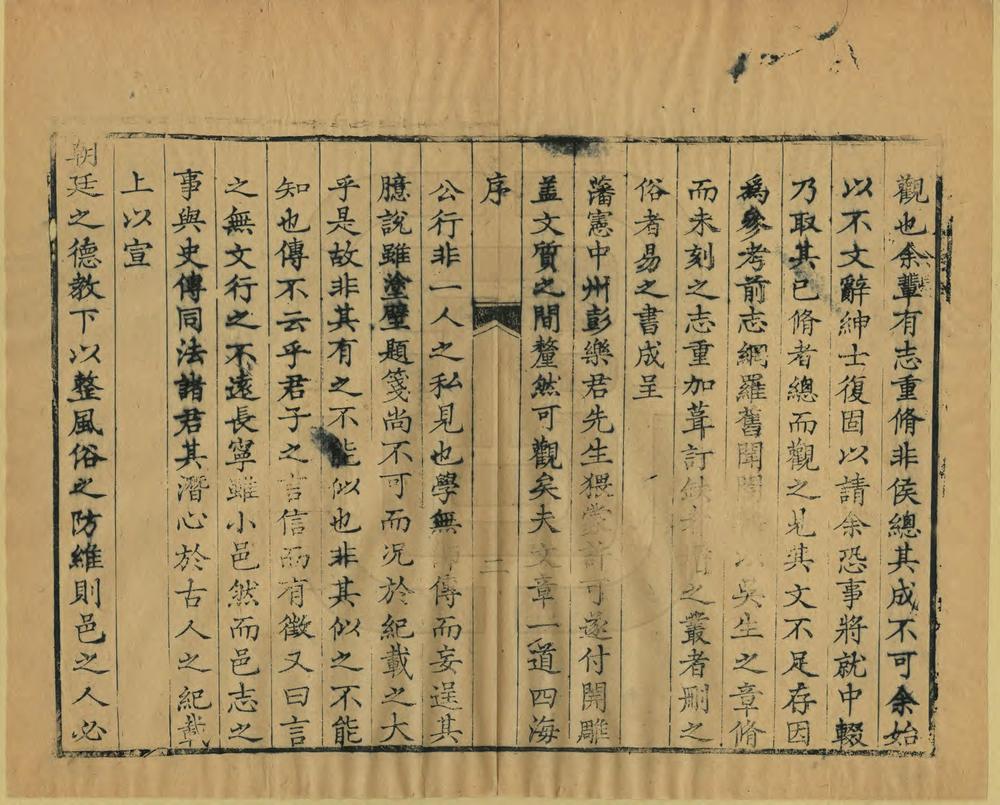 觀也余輩有志重脩非侯總其成不可余始
以不文辭紳士復固以請余恐事將就中輟
乃取其已脩者總而觀之見其文不足存因
爲參考前志網羅舊聞以吳生之章脩
而未刻之志重加葺訂缺者之叢者刪之
俗者易之書成呈
藩憲中州彭樂君先生猥蒙許可遂付開雕
盖文質之間釐然可觀矣夫文章一道四海
序
二
公行非一人之私見也學無師傳而妄逞其
臆說雖塗壁題箋尚不可而况於紀載之大
乎是故非其有之不能似也非其似之不能
知也傳不云乎君子之言信而有徵又曰言
之無文行之不遠長寧雖小邑然而邑志之
事與史傳同法諸君其潛心於古人之紀載
上以宣
朝廷之德教下以整風俗之防維則邑之人必